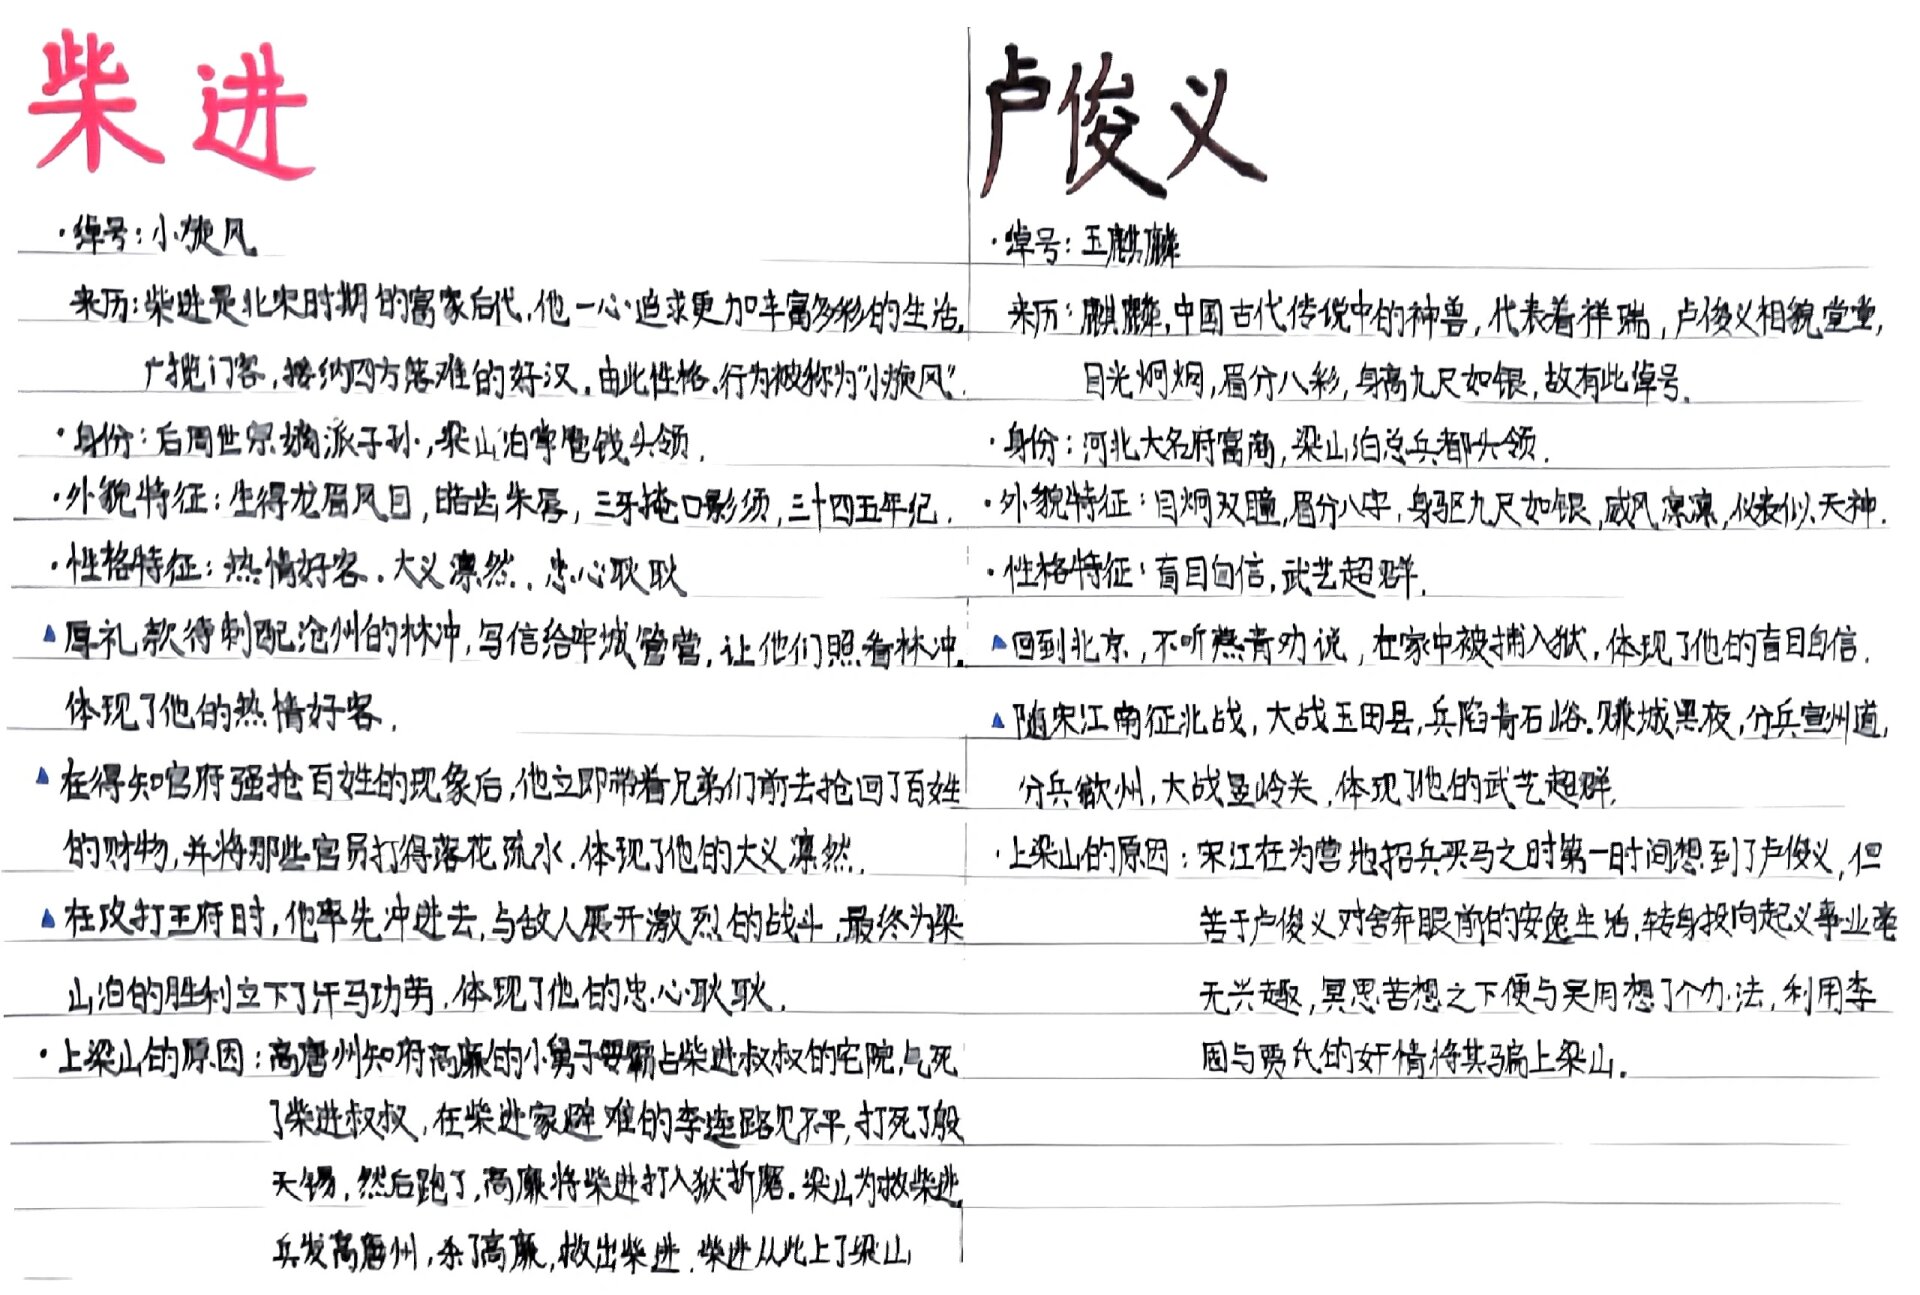 柴进
·绰号:小旋风
来历:柴进是北宋时期的富家后代,他一心追求更加丰富多彩的生活.
广揽门客,接纳四方落难的好汉.由此性格.行为被称为“小旋风”.
·身份:后周世宗嫡派子孙,梁山泊掌管钱头领.
·外貌特征:生得龙眉凤目,皓齿朱唇,三牙掩口髭须,三十四五年纪.
·性格特征:热情好客.大义凛然.忠心耿耿
▲厚礼款待刺配沧州的林冲,写信给牢城管营,让他们照看林冲.
体现了他的热情好客.
▲在得知官府强抢百姓的现象后,他立即带着兄弟们前去抢回了百姓
的财物,并将那些官员打得落花流水.体现了他的大义凛然.
▲在攻打王府时,他率先冲进去,与敌人展开激烈的战斗,最终为梁
山泊的胜利立下了汗马功劳,体现了他的忠心耿耿.
·上梁山的原因:高唐州知府高廉的小舅子要霸占柴进叔叔的宅院,气死
了柴进叔叔,在柴进家避难的李逵路见不平,打死了殷
天锡,然后跑了,高廉将柴进打入狱折磨.梁山为救柴进,
兵发高唐州,杀了高廉,救出柴进.柴进从此上了梁山
卢俊义
·绰号:玉麒麟
来历:麒麟,中国古代传说中的神兽,代表着祥瑞,卢俊义相貌堂堂,
目光炯炯,眉分八彩,身高九尺如银,故有此绰号.
·身份:河北大名府富商,梁山泊总兵都头领.
·外貌特征:目炯双瞳,眉分八字,身躯九尺如银,威风凛凛,仪表似天神.
·性格特征:盲目自信,武艺超群.
▲回到北京,不听燕青劝说,在家中被捕入狱,体现了他的盲目自信.
▲随宋江南征北战,大战玉田县,兵陷青石峪.赚城黑夜,分兵宣州道,
分兵歙州,大战昱岭关,体现了他的武艺超群.
·上梁山的原因:宋江在为营地招兵买马之时第一时间想到了卢俊义,但
苦于卢俊义对舍弃眼前的安逸生活,转身投向起义事业毫
无兴趣,冥思苦想之下便与吴用想了个办法,利用李
固与贾氏的奸情将其骗上梁山.